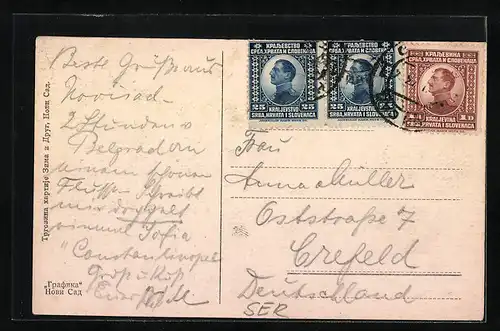 Beste Grüße aus
Novisad
2 Stunden v
Belgrad an
einem schönen
Fluss. Schreibt
mir
Sofia
"Constantinopel
Gruß u Kuß
Euer
Трговина хартије Зима и Друг, Нови Сад.
"Графика"
Нови Сад
КРАЉЕВСТВО
СРБА, ХРВАТА И СЛОВЕНАЦА
25 25
KRALJEVSTVO
SRBA, HRVATA I SLOVENACA
КРАЉЕВСТВО
СРБА, ХРВАТА И СЛОВЕНАЦА
25 25
KRALJEVSTVO
SRBA, HRVATA I SLOVENACA
КРАЉЕВИНА
СРБА, ХРВАТА И СЛОВЕНАЦА
1D 1D
KRALJEVINA
SRBA, HRVATA I SLOVENACA
Frau
Anna Müller
Oststraße 7
Crefeld
Deutschland
SER